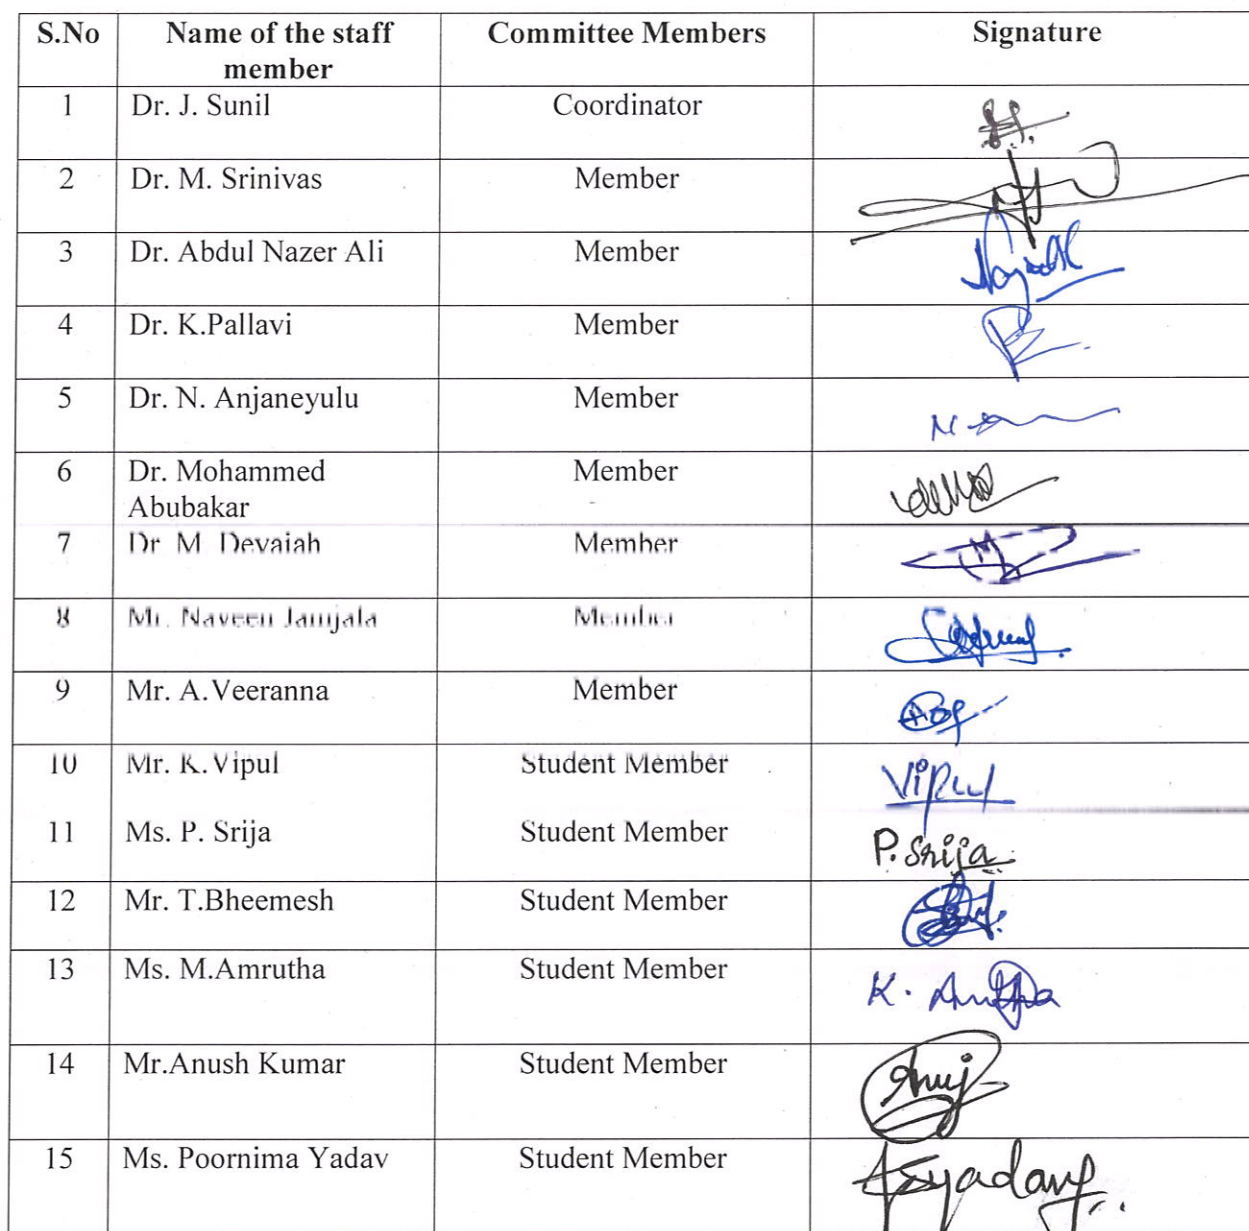 S.No Name of the staff Committee Members Signature
member
1 Dr. J. Sunil Coordinator
2 Dr. M. Srinivas Member
3 Dr. Abdul Nazer Ali Member
4 Dr. K.Pallavi Member
5 Dr. N. Anjaneyulu Member
6 Dr. Mohammed Member
Abubakar
7 Dr M Devaiah Member
8 Mr. Naveen Jamjala Member
9 Mr. A.Veeranna Member
10 Mr. K.Vipul Student Member Vipul
11 Ms. P. Srija Student Member P. Srija
12 Mr. T.Bheemesh Student Member
13 Ms. M.Amrutha Student Member K.
14 Mr.Anush Kumar Student Member
15 Ms. Poornima Yadav Student Member